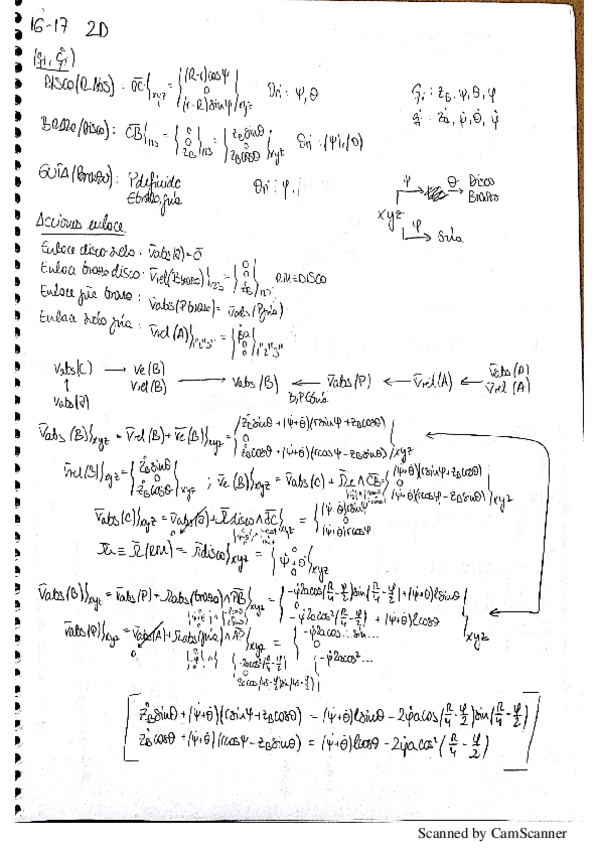 16-17 2D
(qi, q̇i)
DISCO (R. Abs) : OC}xyz = {(R-r)cosψ, 0, (r-R)sinψ}xyz Ori : ψ, θ
qi : zB, ψ, θ, φ
q̇i : żB, ψ̇, θ̇, φ̇
BRAZO (Disco) : CB}123 = {0, 0, zB}123 = {zB sinθ, 0, zB cosθ}xyz Ori : (ψ), (θ)
GUÍA (brazo) : P definido Ori : φ
ψ θ Disco
Brazo
xyz
φ Guía
Acciones enlace
Enlace disco suelo : Vabs(J) = 0
Enlace brazo disco : Vrel(B brazo)}123 = {0, 0, żB}123 RM = DISCO
Enlace guía brazo : Vabs(P brazo) = Vabs(P guía)
Enlace suelo guía : Vrel(A)}1"2"3"
Vabs(C) → Ve(B)
Vrel(B) → Vabs(B) ← Vabs(P) ← Vrel(A) ← Vabs(A)
Vabs(B)}xyz = Vrel(B) + Ve(B)}xyz = {żB sinθ + (ψ̇+θ̇)(r sinψ + zB cosθ), 0, żB cosθ + (ψ̇+θ̇)(r cosψ - zB sinθ)}xyz
Vrel(B)}xyz = {żB sinθ, 0, żB cosθ}xyz ; Ve(B)}xyz = Vabs(C) + Ωe ∧ CB = {(ψ̇+θ̇)(r sinψ + zB cosθ), 0, (ψ̇+θ̇)(r cosψ - zB sinθ)}xyz
Vabs(C)}xyz = Vabs(J) + Ω disco ∧ JC}xyz = {(ψ̇+θ̇) r sinψ, 0, (ψ̇+θ̇) r cosψ}
Ωe ≡ Ω(RM) = Ω disco}xyz = {0, ψ̇+θ̇, 0}xyz
Vabs(B)}xyz = Vabs(P) + Ωabs(brazo) ∧ PB}xyz = {-φ̇2a cos(π/4 - φ/2) sin(π/4 - φ/2) + (ψ̇+θ̇) l sinθ, 0, -φ̇2a cos²(π/4 - φ/2) + (ψ̇+θ̇) l cosθ}xyz
Vabs(P)}xyz = Vabs(A) + Ωabs(guía) ∧ AP}xyz = {-φ̇2a cos... sin..., 0, -φ̇2a cos²...
żB sinθ + (ψ̇+θ̇)(r sinψ + zB cosθ) = (ψ̇+θ̇) l sinθ - 2φ̇a cos(π/4 - φ/2) sin(π/4 - φ/2)
żB cosθ + (ψ̇+θ̇)(r cosψ - zB sinθ) = (ψ̇+θ̇) l cosθ - 2φ̇a cos²(π/4 - φ/2)
Scanned by CamScanner